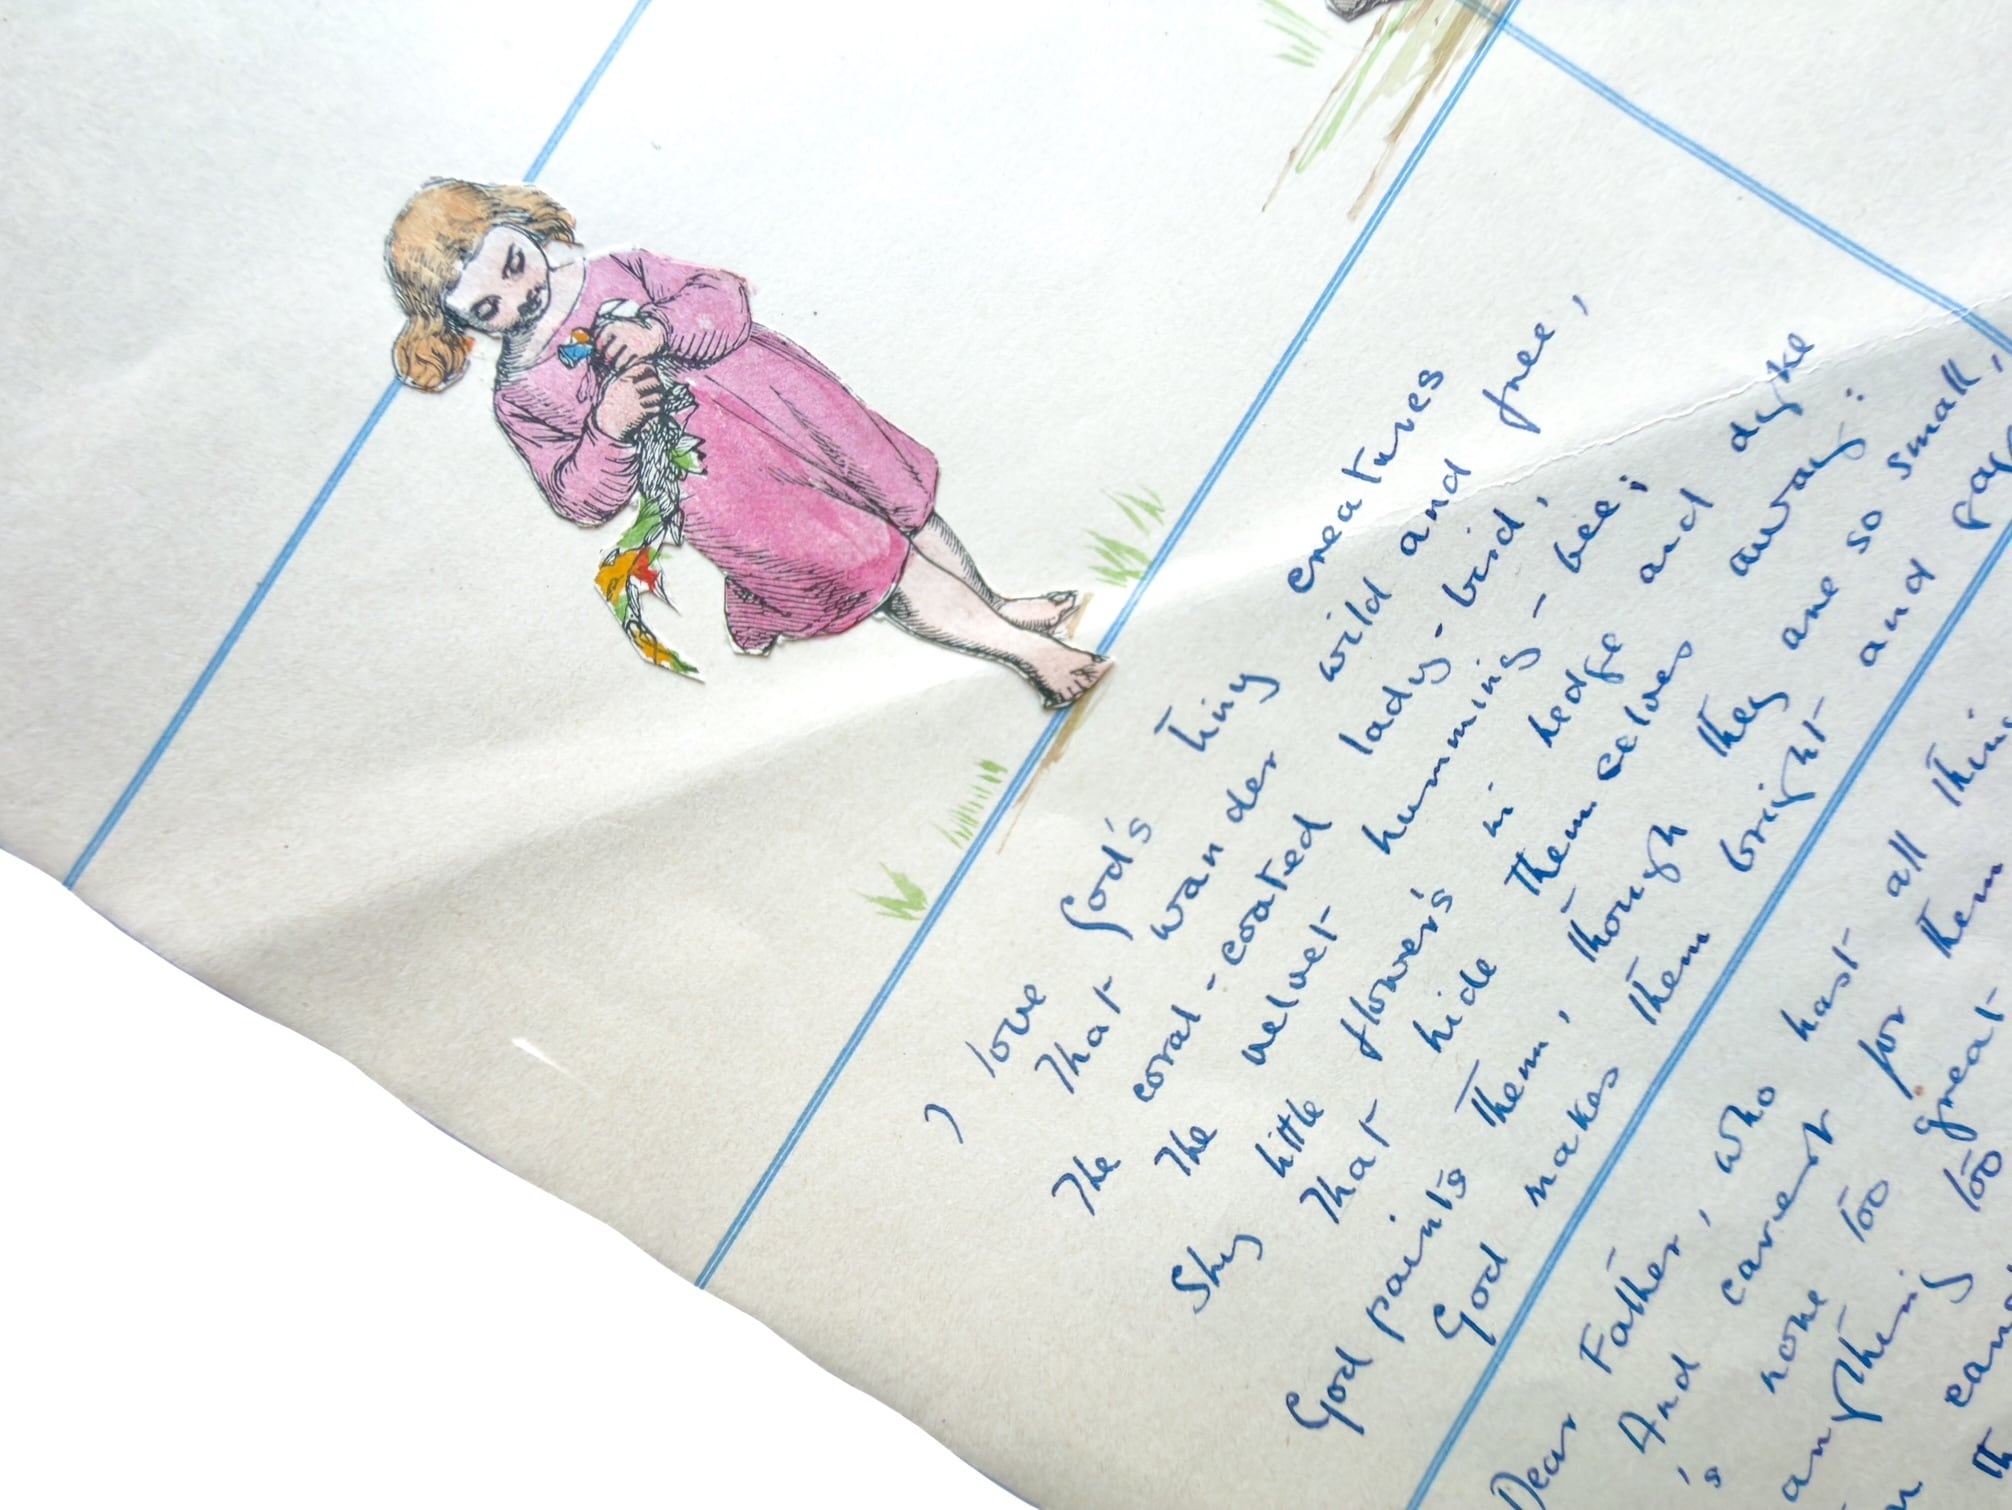 I love God's tiny creatures
That wander wild and free,
The coral-coated lady-bird,
The velvet humming-bee;
Shy little flower's in hedge and dyke
That hide themselves away:
God paints them, though they are so small,
God makes them bright and gay
Dear Father, who hast all thin
And carest for them
's none too great
anything too